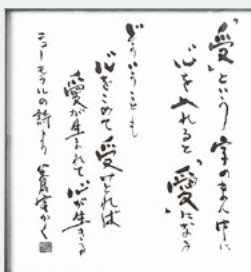 「愛」という字のまん中に
心を入れると「愛」になる
どういうことも
心をこめて愛せれば
愛が生まれて心が生きる
の詩より